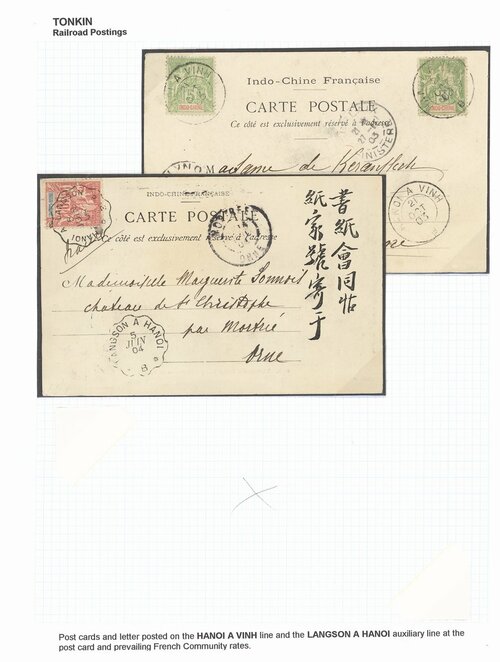 TONKIN
Railroad Postings
A VINH
Indo-Chine Française
CARTE POSTALE
Ce côté est exclusivement réservé à l'adresse
FINISTERE
Madame de
HANOI A VINH
03
INDO-CHINE FRANÇAISE
CARTE POSTALE
Ce côté est exclusivement réservé à l'adresse
ORNE
Mademoiselle Marguerite
chateau de St Christophe
par Mortrée
Orne
LANGSON A HANOI
5
JUIN
04
B
書紙會同帖
紙家號寄于
Post cards and letter posted on the HANOI A VINH line and the LANGSON A HANOI auxiliary line at the
post card and prevailing French Community rates.